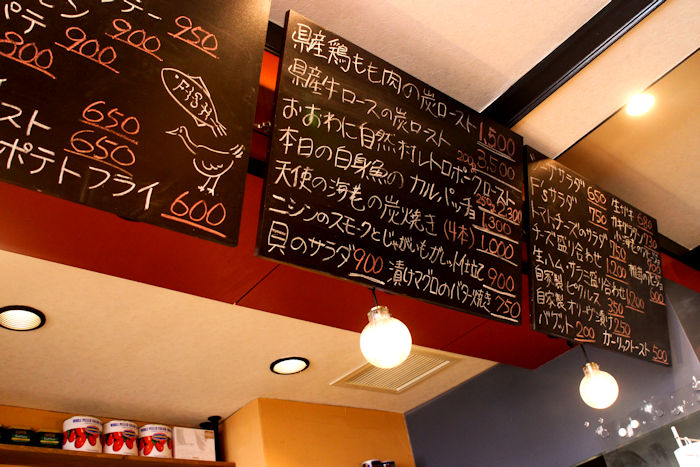 950
ポテ 900 900 900
FISH
650
スト 650
ポテトフライ 600
県産鶏もも肉の炭ロースト 1,500
県産牛ロースの炭ロースト 3,500
おおわに自然村レトロポークロースト 200g 2,300
本日の白身魚のカルパッチョ 1,300
天使の海老の炭焼き(4本) 1,000
ニシンのスモークとじゃがいもガレット仕立 900
貝のサラダ 900 漬けマグロのバター焼き 750
サラダ 650 生ガキ 680
F'sサラダ 750
トマトチーズのサラダ 750
チーズ盛り合わせ 1200
生ハム・サラミ盛り合わせ 1200
自家製ピクルス 350
自家製オリーブ漬け 250
バゲット 200 ガーリックトースト 500
WHOLE PEELED
WHOLE PEELED
WHOLE PEELED